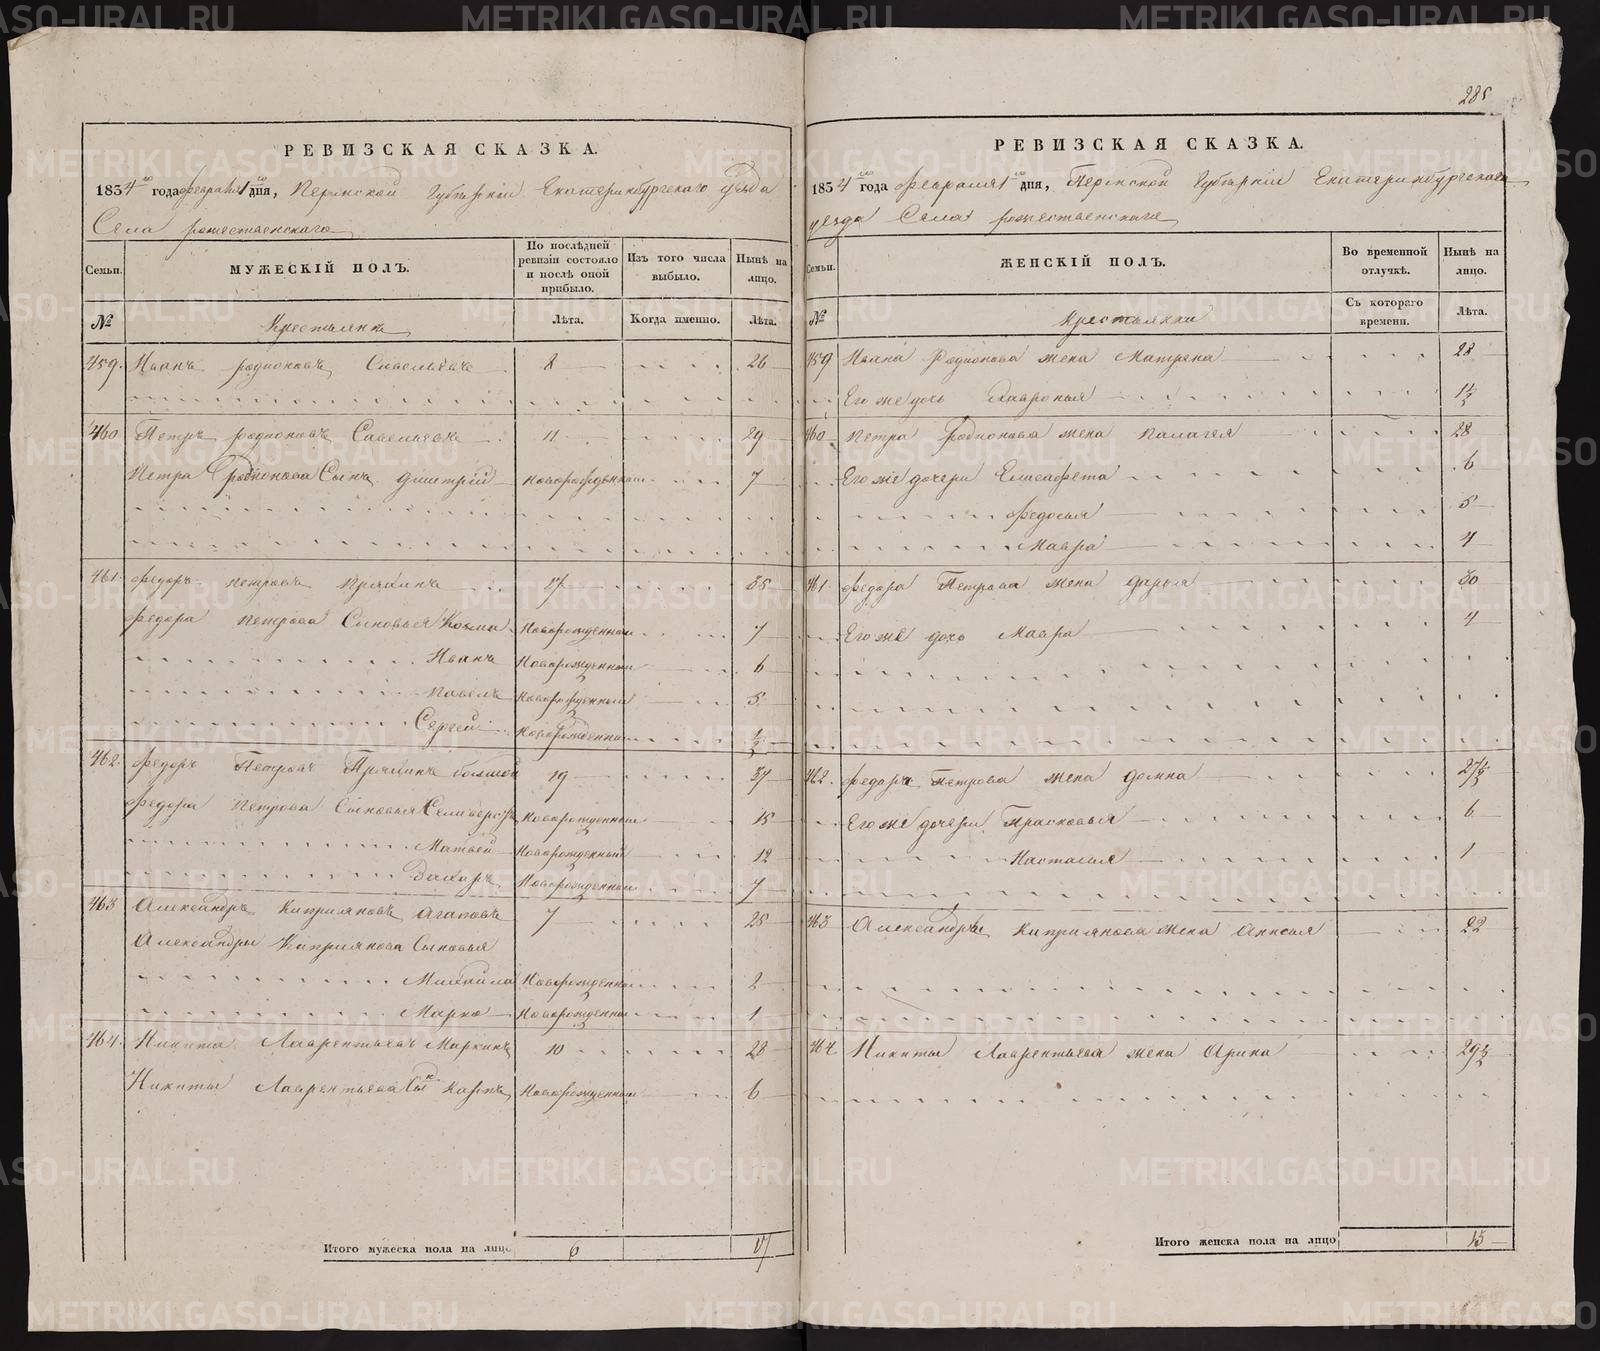 285
РЕВИЗСКАЯ СКАЗКА.
1834 го года февраля 1 го дня, Пермской Губернiи Екатеринбургскаго уезда
Села рожественскаго
Семьи. МУЖЕСКІЙ ПОЛЪ. По послѣдней ревизіи состояло и послѣ оной прибыло. Изъ того числа выбыло. Нынѣ на лицо.
№ Крестьяня Лѣта. Когда именно. Лѣта.
459. Иванъ родионовъ Савельевъ 8 26
460 Петръ родионовъ Савельевъ 11 29
Петра родионова Сынъ дмитрiй новорожденный 7
461. Федоръ петровъ Пряхинъ 17 35
Федора петрова Сыновья Козма Новорожденный 7
Иванъ Новорожденный 6
Павелъ Новорожденный 5
Сергей Новорожденный 1/2
462. Федоръ Петровъ Пряхинъ большой 19 37
Федора Петрова Сыновья Селиверстъ Новорожденный 15
Матвей Новорожденный 12
Захаръ Новорожденный 7
463 Александръ Киприяновъ Агаповъ 7 25
Александры Киприянова Сыновья
Михайла Новорожденный 2
Марко Новорожденный 1
464. Никита Лаврентьевъ Маркинъ 10 28
Никиты Лаврентьева Сынъ Карпъ Новорожденный 6
Итого мужеска пола на лицо 6 17
РЕВИЗСКАЯ СКАЗКА.
1834 го года Февраля 1 го дня, Пермской Губернiи Екатеринбургскаго
уезда Села рожественскаго
Семьи. ЖЕНСКІЙ ПОЛЪ. Во временной отлучкѣ. Нынѣ на лицо.
№ Крестьянки Съ котораго времени. Лѣта.
459 Ивана Родионова жена Матрена 28
Его же дочь Хаврония 1 1/2
460 Петра Родионова жена Палагея 28
Его же дочери Елисафета 6
Федосья 5
Мавра 4
461 Федора Петрова жена дарья 30
Его же дочь Мавра 4
462. Федоръ Петрова жена домна 27 1/2
Его же дочери Прасковья 6
Настасья 1
463 Александры Киприянова жена Анисья 22
464 Никиты Лаврентьева жена Арина 29 1/2
Итого женска пола на лицо 13
METRIKI.GASO-URAL.RU